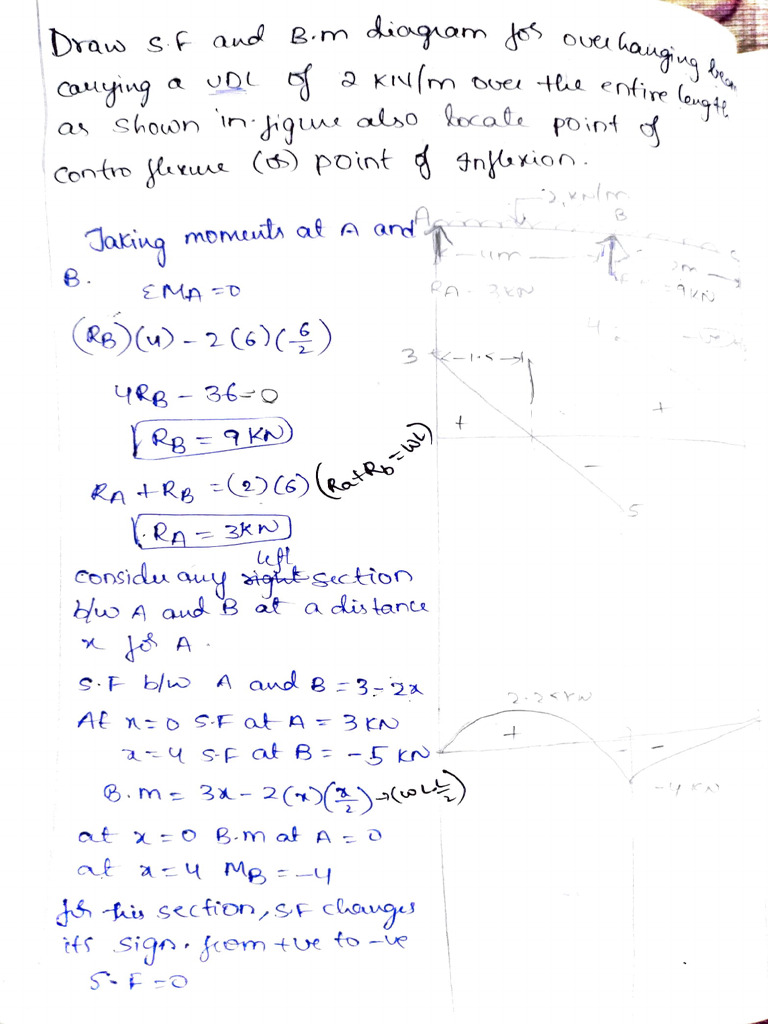 Draw S.F and B.m diagram for overhanging
carrying a UDL of 2 KN/m over the entire length
as shown in figure also locate point of
contro flexure (or) point of Inflexion.
Taking moments at A and
B.
ΣMA = 0
(RB)(4) - 2(6)(6/2)
4RB - 36 = 0
RB = 9 KN
RA + RB = (2)(6) (Ra+Rb = WL)
RA = 3KN
left
consider any right section
b/w A and B at a distance
x for A.
S.F b/w A and B = 3 - 2x
At x = 0 S.F at A = 3 KN
x = 4 S.F at B = -5 KN
B.m = 3x - 2(x)(x/2) → (WL L/2)
at x = 0 B.m at A = 0
at x = 4 MB = -4
for this section, S.F changes
its sign. from +ve to -ve
S.F = 0
2 KN/m
A B C
4m
RA = 3KN = 9KN
3 1.5
+ +
-
5
2.25 KN
+ - -
-4 KN